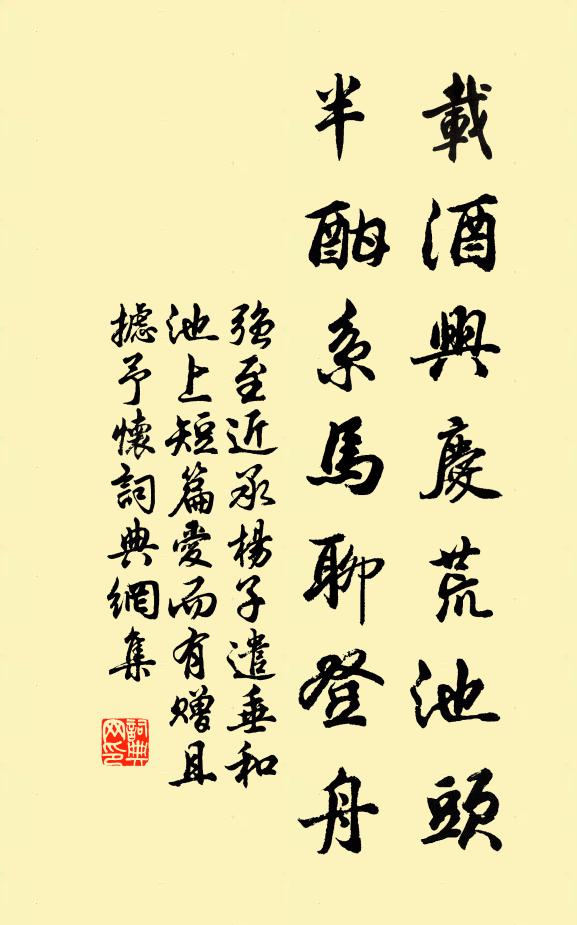 載酒興慶荒池頭
半酣系馬聊登舟
強至近承楊子遣垂和
池上短篇愛而有贈且
攄予懷詞典網集
詞典網印